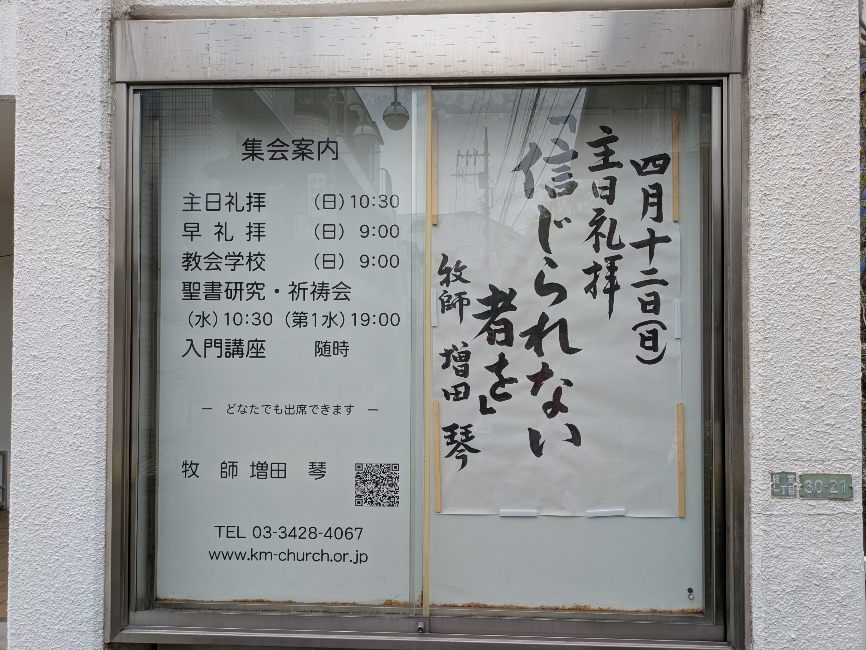 集会案内
主日礼拝 （日）10:30
早礼拝 （日）9:00
教会学校 （日）9:00
聖書研究・祈祷会
（水）10:30（第1水）19:00
入門講座 随時
― どなたでも出席できます ―
牧師 増田 琴
TEL 03-3428-4067
www.km-church.or.jp
四月十二日（日）
主日礼拝
「信じられない
者を」
牧師 増田 琴
30-21